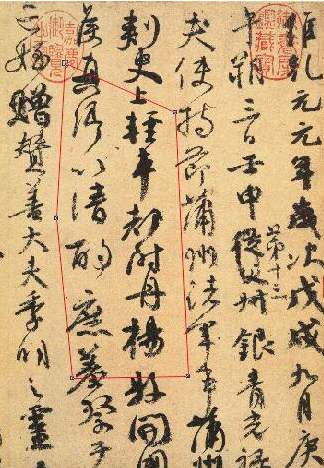 維乾元元年歲次戊戌九月庚
午朔三日壬申第十三從父叔銀青光祿
夫使持節蒲州諸軍事蒲州
刺史上輕車都尉丹楊縣開國
侯真卿以清酌庶羞祭于
亡姪贈贊善大夫季明之靈